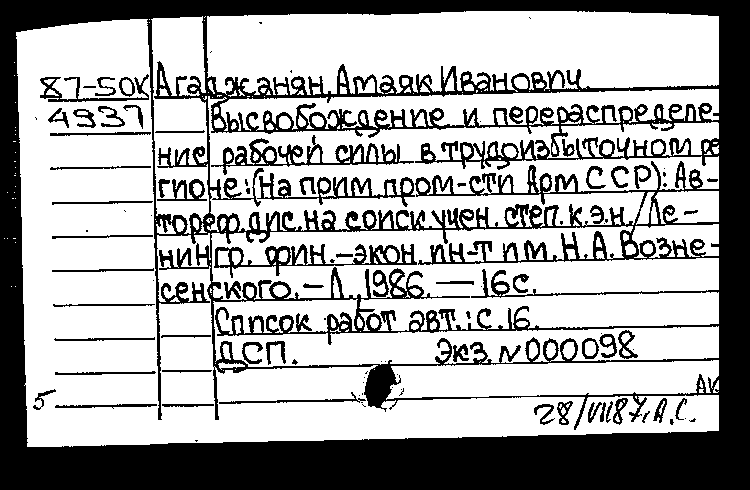 87-50к Агаджанян, Амаяк Иванович.
4937 Высвобождение и перераспределе-
ние рабочей силы в трудоизбыточном ре
гионе: (На прим. пром-сти Арм ССР): Ав-
тореф. дис. на соиск. учен. степ. к.э.н. / Ле-
нингр. фин.-экон. ин-т им. Н.А. Возне-
сенского. - Л., 1986. — 16с.
Список работ авт.: с. 16.
ДСП. Экз. N 000098
5
28/VII87. А.С.